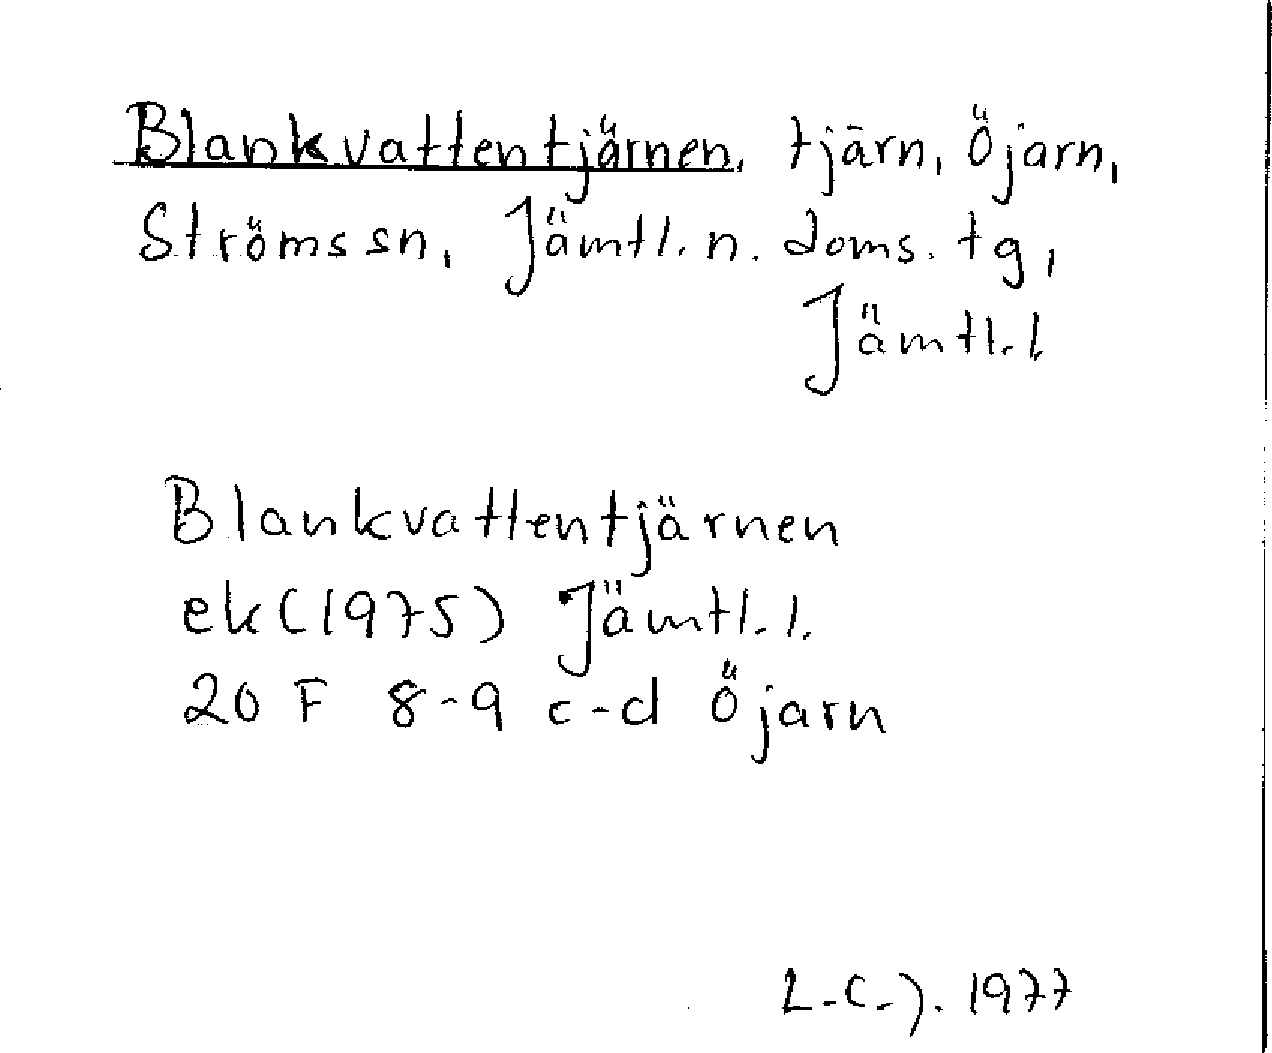 Blankvattentjärnen, tjärn, Öjarn,
Ströms sn, Jämtl. n. doms. tg,
Jämtl. l.
Blankvattentjärnen
ek (1975) Jämtl. l.
20 F 8-9 c-d Öjarn
L-C-J. 1977